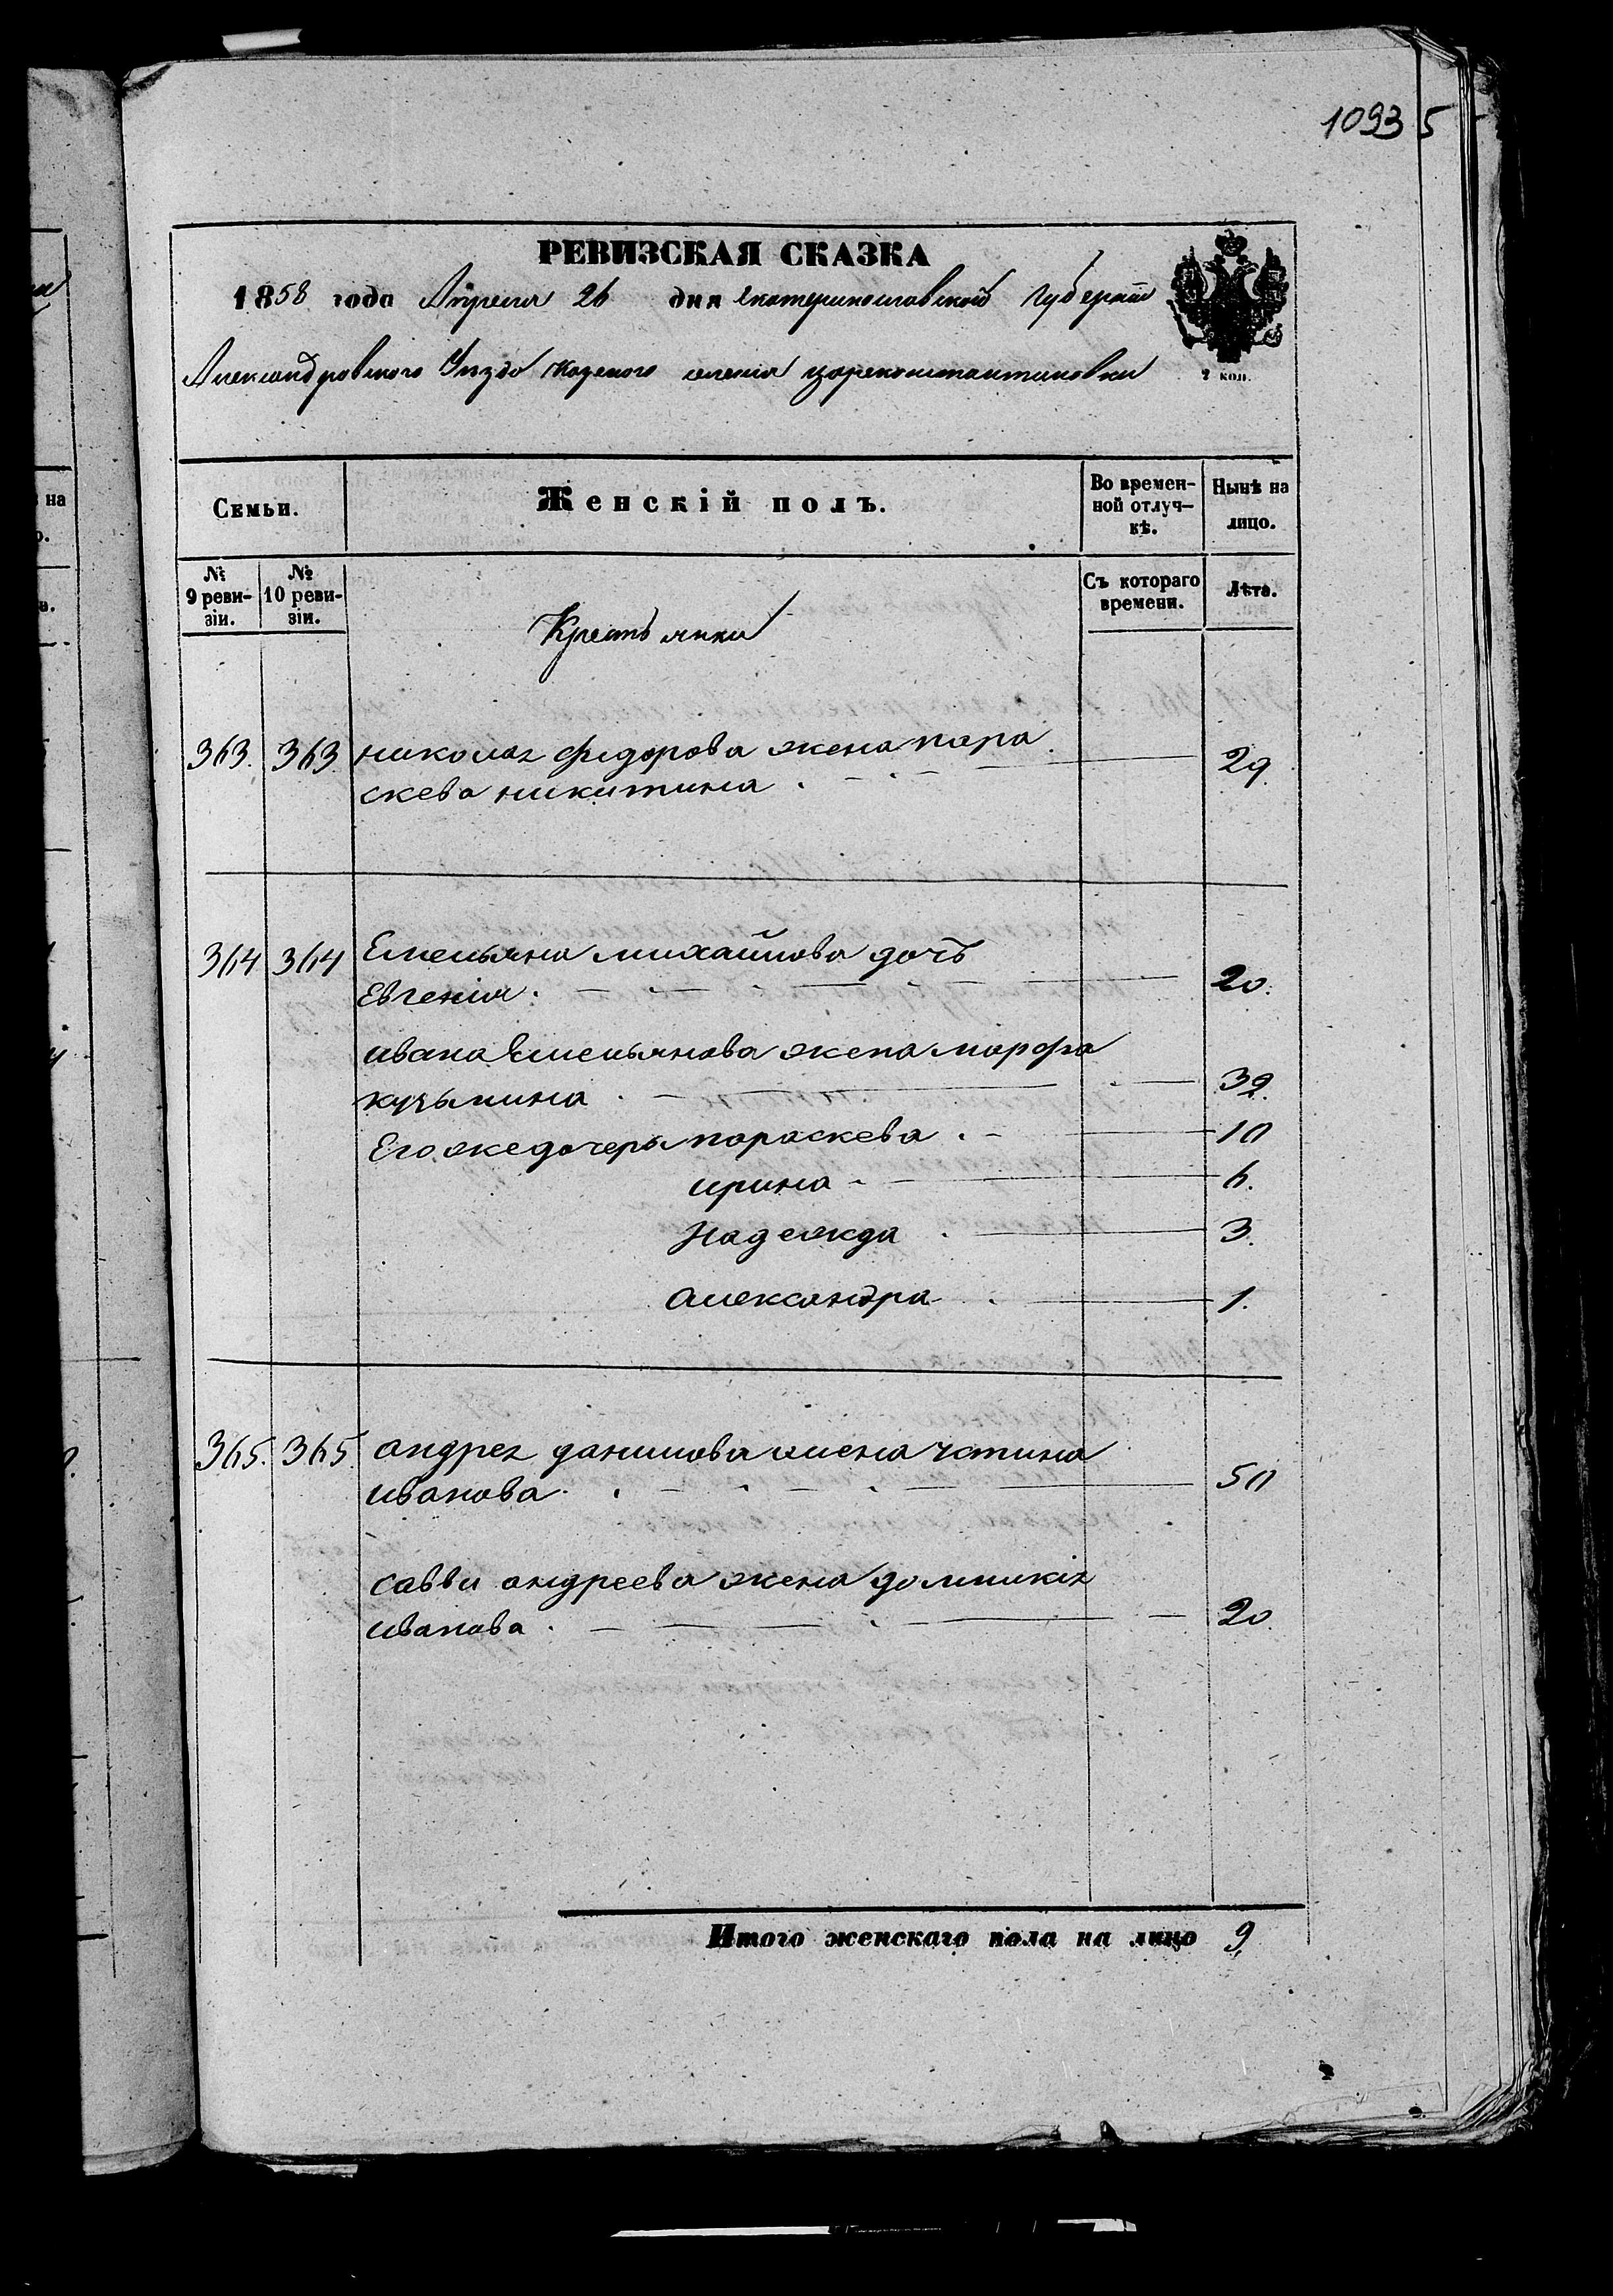 1093 5
РЕВИЗСКАЯ СКАЗКА
1858 года Апреля 26 дня Екатеринославской Губернiи
Александровского Уезда Казеного селенiя Цареконстантиновки
2 коп.
Семьи.
Женскiй полъ.
Во времен-
ной отлуч-
кѣ.
Нынѣ на
лицо.
№
9 реви-
зiи.
№
10 реви-
зiи.
Съ котораго
времени.
Лѣта.
Крестьянки
363. 363 николая федорова жена пара
скева никитина 29.
364 364 Емельяна михайлова дочь
Евгенiя 20.
ивана Емельянова жена марфа
кузьмина 39.
Его же дочери параскева 10
ирина 6.
Надежда 3.
александра 1.
365. 365. андрея данилова жена
иванова 50
савви андреева жена домникiя
иванова 20.
Итого женскаго пола на лицо 9